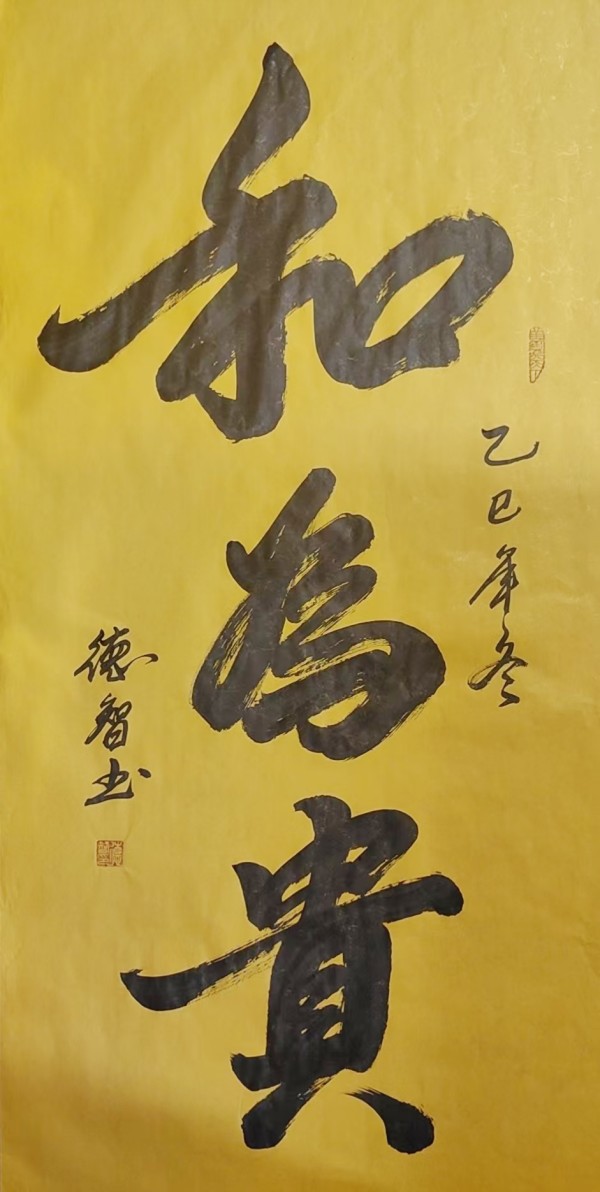 和為貴
乙巳年冬
德智书